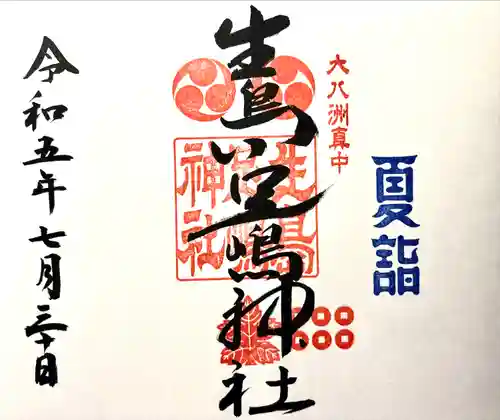 夏詣
大八洲真中
生島足嶋神社
生島足嶋神社
令和五年七月三十日